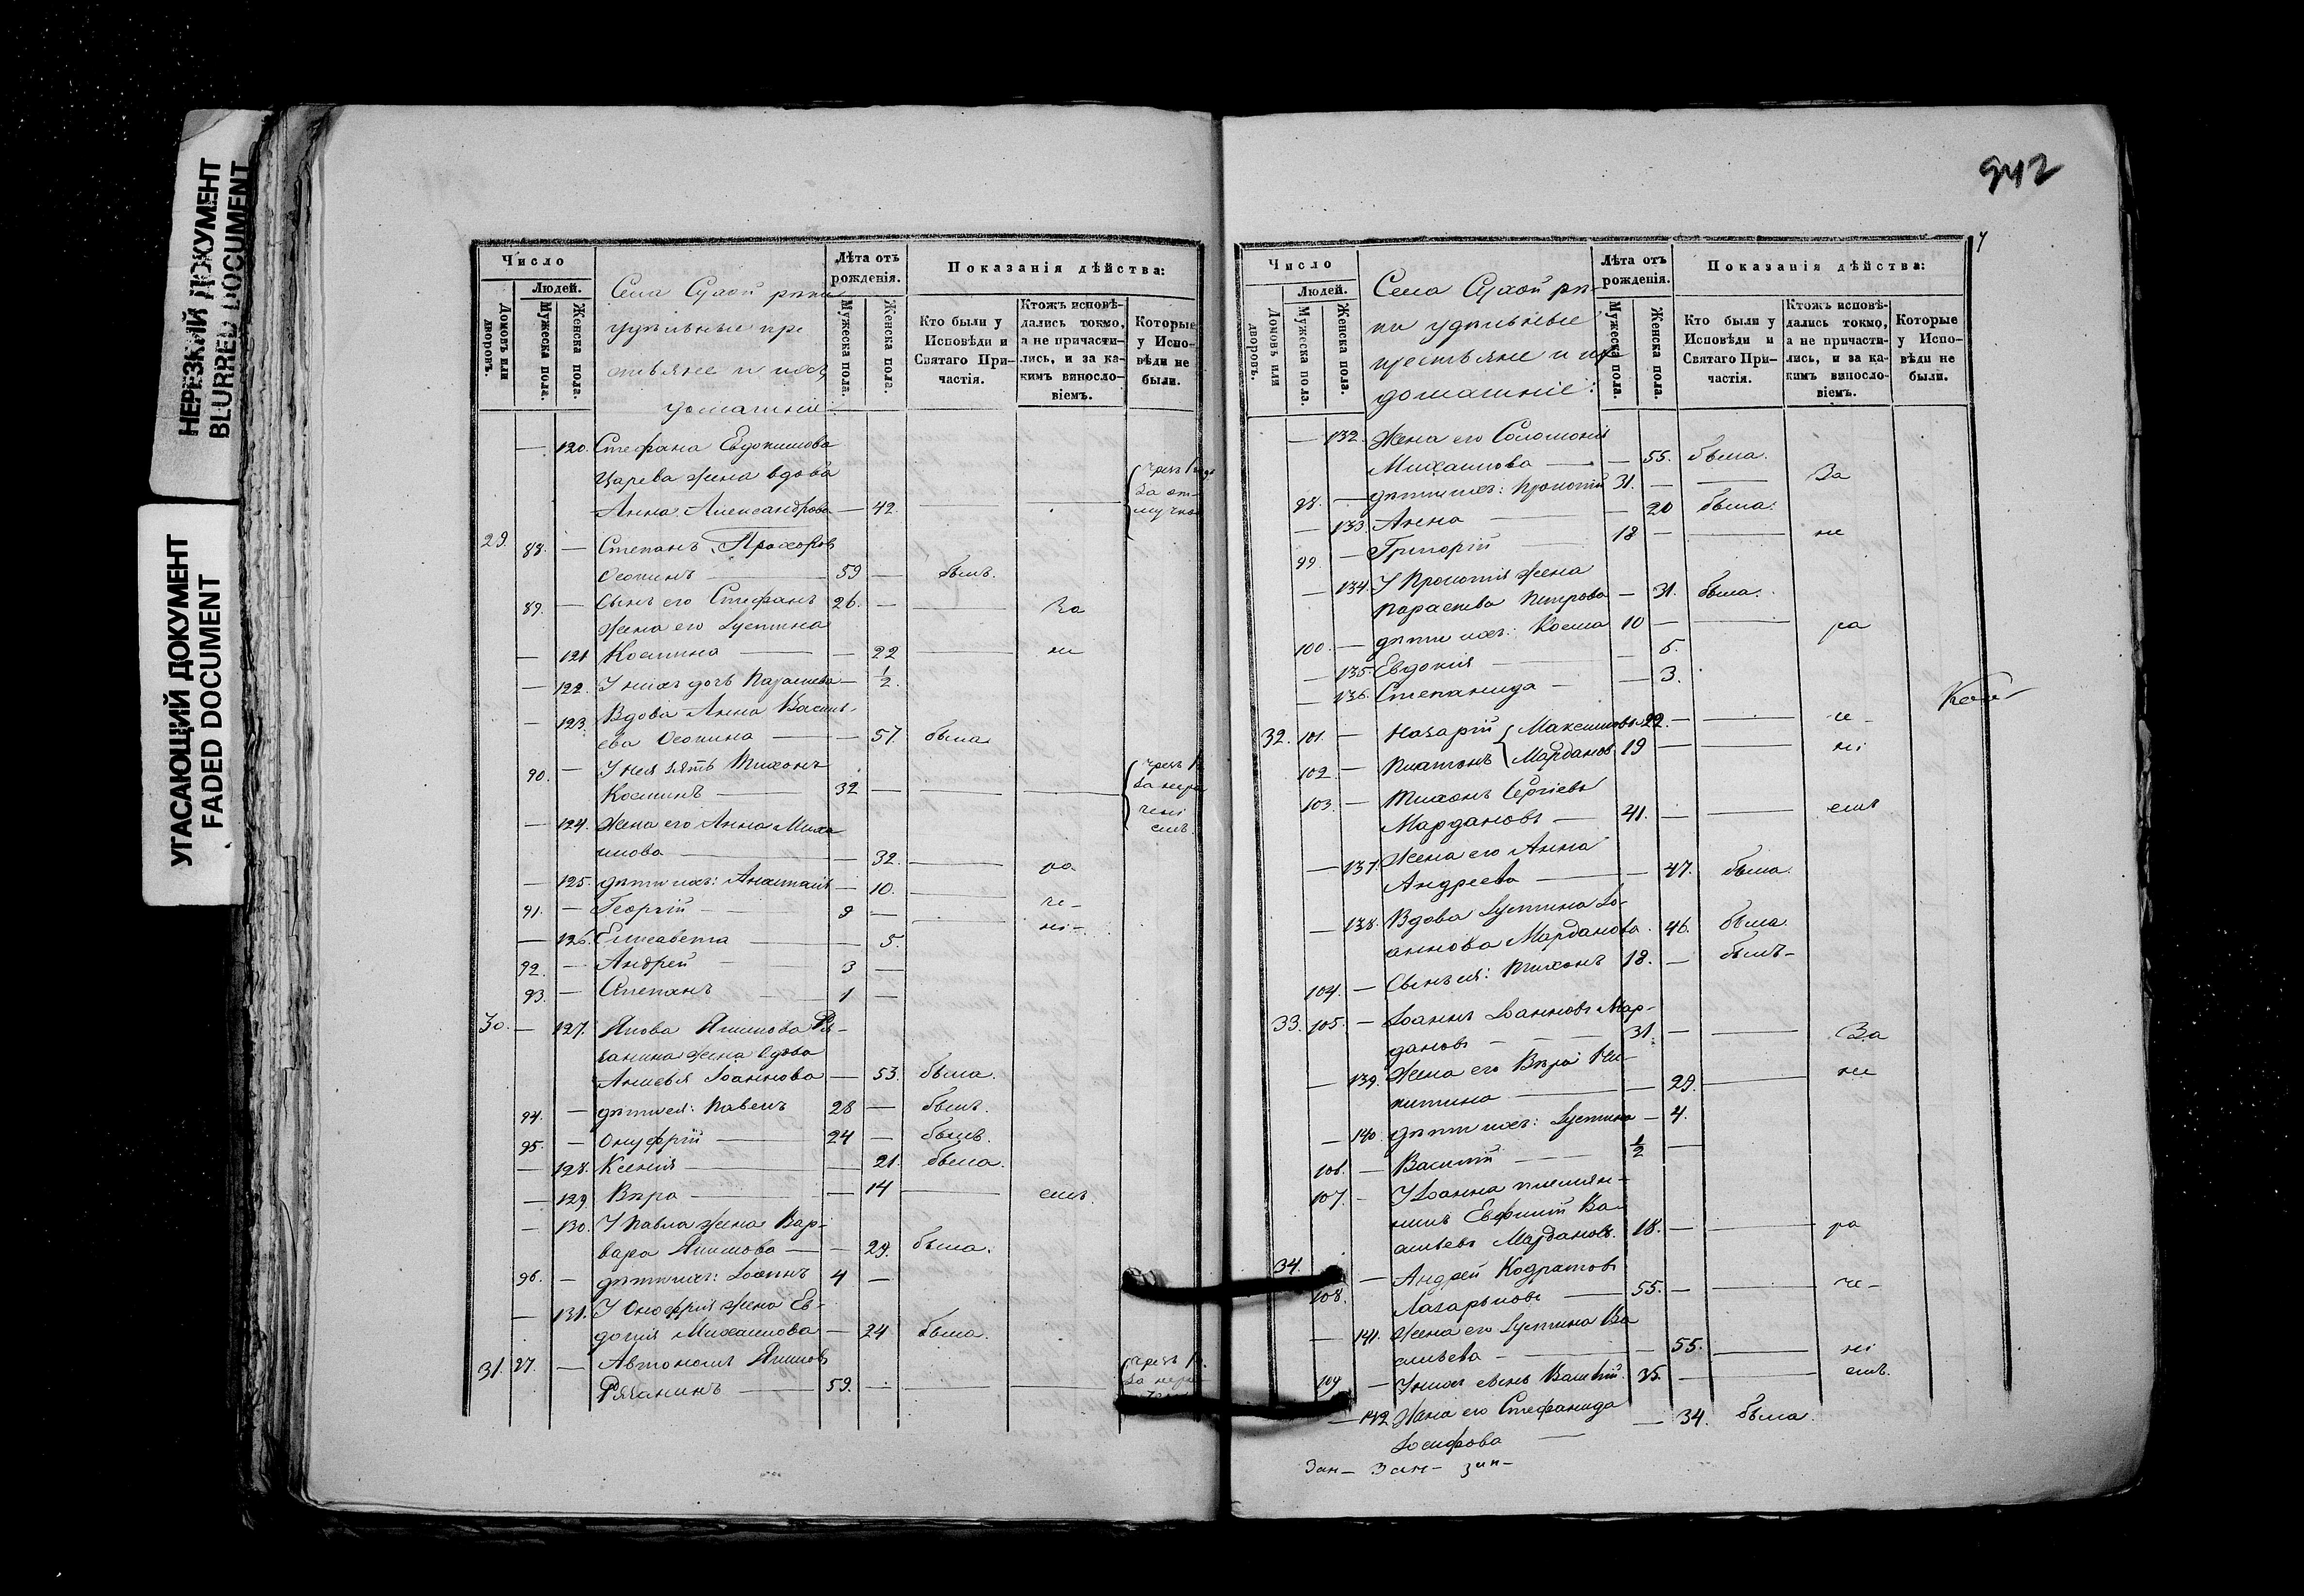 НЕРЕЗКИЙ ДОКУМЕНТ
BLURRED DOCUMENT
УГАСАЮЩИЙ ДОКУМЕНТ
FADED DOCUMENT
Число
Людей.
Домовъ или дворовъ.
Мужеска пола.
Женска пола.
Села Сухой рѣки
удѣльные кре
стьяне и ихъ
домашніе:
Лѣта отъ рожденія.
Мужеска пола.
Женска пола.
Показанія дѣйства:
Кто были у Исповѣди и Святаго Причастія.
Ктожъ исповѣдались токмо, а не причастились, и за какимъ винословіемъ.
Которые у Исповѣди не были.
— 120. Стефана Евдокимова
Царева жена вдова
Анна Александрова — 42.
29. 88. — Степанъ Прохоровъ
Осокинъ — 59 — былъ.
89. — Сынъ его Стефанъ 26. — За
Жена его Іустина
— 121 Космина — 22 не
— 122. У нихъ дочь Параскева — 1/2.
— 123. Вдова Анна Василь-
ева Осокина — 57. была.
90. — У нея зять Тихонъ
Косминъ — 32 —
— 124. Жена его Анна Миха
илова — 32. ра
— 125. дѣти ихъ: Анастасія — 10. че-
91. — Георгій — 9 — ні-
— 126. Елисавета — 5.
92. — Андрей — 3 —
93. — Степанъ 1 —
30. — 127. Якова Якимова Ря-
занина жена вдова
Анисья Іоаннова — 53. была.
94. — дѣти ея: Павелъ 28 — былъ.
95. — Онуфрій — 24 — былъ.
— 128. Ксенія — 21. была.
— 129. Вѣра — 14 емъ.
— 130. У Павла жена Вар-
вара Якимова — 29. была.
96. — дѣти ихъ: Іоаннъ 4 —
— 131. У Онуфрія жена Ев-
докія Михаилова — 24 была.
31. 97. — Автономъ Якимовъ
Рязанинъ — 59. —
942
Число
Людей.
Домовъ или дворовъ.
Мужеска пола.
Женска пола.
Села Сухой рѣ-
ки удѣльные
крестьяне и их
домашніе:
Лѣта отъ рожденія.
Мужеска пола.
Женска пола.
Показанія дѣйства:
Кто были у Исповѣди и Святаго Причастія.
Ктожъ исповѣдались токмо, а не причастились, и за какимъ винословіемъ.
Которые у Исповѣди не были.
— 132. Жена его Соломонія
Михаилова — 55. была.
98. — дѣти ихъ: Прокопій 31. — За
— 133. Анна — 20 была.
99. — Григорій 18 — не
— 134. У Прокопія жена
Параскева Петрова — 31. была.
100. — дѣти ихъ: Косма 10 — ра
— 135. Евдокія — 5.
— 136. Степанида — 3.
32. 101. — Назарій Максимовы 22. — че-
102. — Платонъ Мардановы 19 — ні
103. — Тихонъ Сергіевъ
Мардановъ — 41. — емъ
— 137. Жена его Анна
Андреева — 47. была.
— 138. Вдова Іустина Іо-
аннова Марданова. 46. была.
104. — Сынъ ея: Тихонъ 18. — былъ-
33. 105. — Іоаннъ Іоанновъ Мар-
дановъ — 31. — За
— 139. Жена его Вѣра Ни-
китина — 29. не
— 140. дѣти ихъ: Іустина — 4.
106. — Василій — 1/2 —
107. — У Іоанна племян-
никъ Евфимій Ва-
сильевъ Мардановъ. 18. — ра
34. 108. — Андрей Кодратовъ
Лазарьковъ — 55. — че-
— 141. Жена его Іустина Ва
сильева — 55. ні
109 — У нихъ сынъ Василій. 35. — емъ.
— 142. Жена его Стефанида
Іосифова — 34. была.